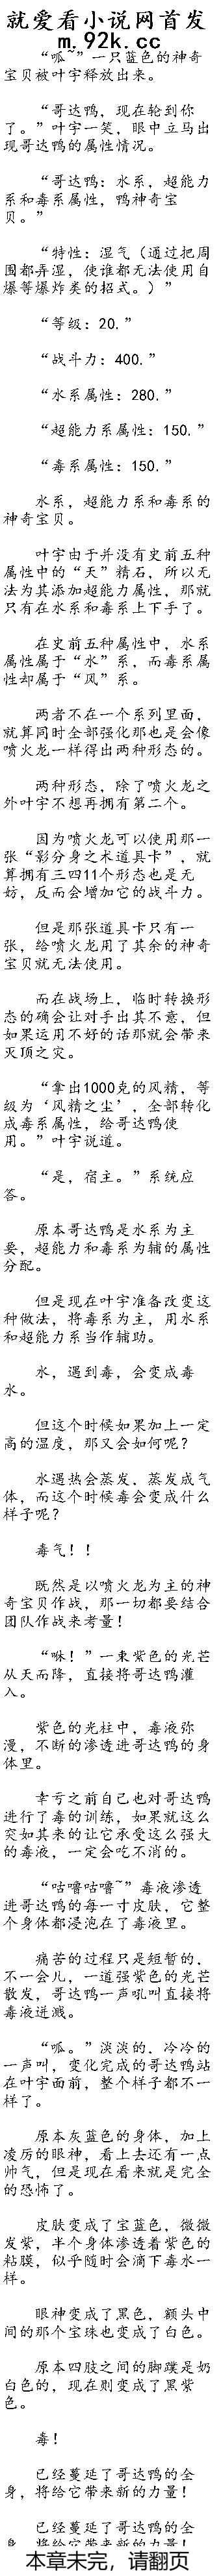 就爱看小说网首发
m.92k.cc
“呱~”一只蓝色的神奇
宝贝被叶宇释放出来。
“哥达鸭，现在轮到你
了。”叶宇一笑，眼中立马出
现哥达鸭的属性情况。
“哥达鸭：水系，超能力
系和毒系属性，鸭神奇宝
贝。”
“特性：湿气（通过把周
围都弄湿，使谁都无法使用自
爆等爆炸类的招式。）”
“等级：20.”
“战斗力：400.”
“水系属性：280.”
“超能力系属性：150.”
“毒系属性：150.”
水系，超能力系和毒系的
神奇宝贝。
叶宇由于并没有史前五种
属性中的“天”精石，所以无
法为其添加超能力属性，那就
只有在水系和毒系上下手了。
在史前五种属性中，水系
属性属于“水”系，而毒系属
性却属于“风”系。
两者不在一个系列里面，
就算同时全部强化那也是会像
喷火龙一样得出两种形态的。
两种形态，除了喷火龙之
外叶宇不想再拥有第二个。
因为喷火龙可以使用那一
张“影分身之术道具卡”，就
算拥有三四11个形态也是无
妨，反而会增加它的战斗力。
但是那张道具卡只有一
张，给喷火龙用了其余的神奇
宝贝就无法使用。
而在战场上，临时转换形
态的确会让对手出其不意，但
如果运用不好的话那就会带来
灭顶之灾。
“拿出1000克的风精，等
级为‘风精之尘’，全部转化
成毒系属性，给哥达鸭使
用。”叶宇说道。
“是，宿主。”系统应
答。
原本哥达鸭是水系为主
要，超能力和毒系为辅的属性
分配。
但是现在叶宇准备改变这
种做法，将毒系为主，用水系
和超能力系当作辅助。
水，遇到毒，会变成毒
水。
但这个时候如果加上一定
高的温度，那又会如何呢？
水遇热会蒸发，蒸发成气
体，而这个时候毒会变成什么
样子呢？
毒气！！
既然是以喷火龙为主的神
奇宝贝作战，那一切都要结合
团队作战来考量！
“咻！”一束紫色的光芒
从天而降，直接将哥达鸭灌
入。
紫色的光柱中，毒液弥
漫，不断的渗透进哥达鸭的身
体里。
幸亏之前自己也对哥达鸭
进行了毒的训练，如果就这么
突如其来的让它承受这么强大
的毒液，一定会吃不消的。
“咕噜咕噜~”毒液渗透
进哥达鸭的每一寸皮肤，它整
个身体都浸泡在了毒液里。
痛苦的过程只是短暂的，
不一会儿，一道强紫色的光芒
散发，哥达鸭一声吼叫直接将
毒液迸溅。
“呱。”淡淡的，冷冷的
一声叫，变化完成的哥达鸭站
在叶宇面前，整个样子都不一
样了。
原本灰蓝色的身体，加上
凌厉的眼神，看上去还有一点
帅气，但是现在看来就是完全
的恐怖了。
皮肤变成了宝蓝色，微微
发紫，半个身体渗透着紫色的
粘膜，似乎随时会滴下毒水一
样。
眼神变成了黑色，额头中
间的那个宝珠也变成了白色。
原本四肢之间的脚蹼是奶
白色的，现在则变成了黑紫
色。
毒！
已经蔓延了哥达鸭的全
身，将给它带来新的力量！
已经蔓延了哥达鸭的全
身，将给它带来新的力量！
本章未完，请翻页